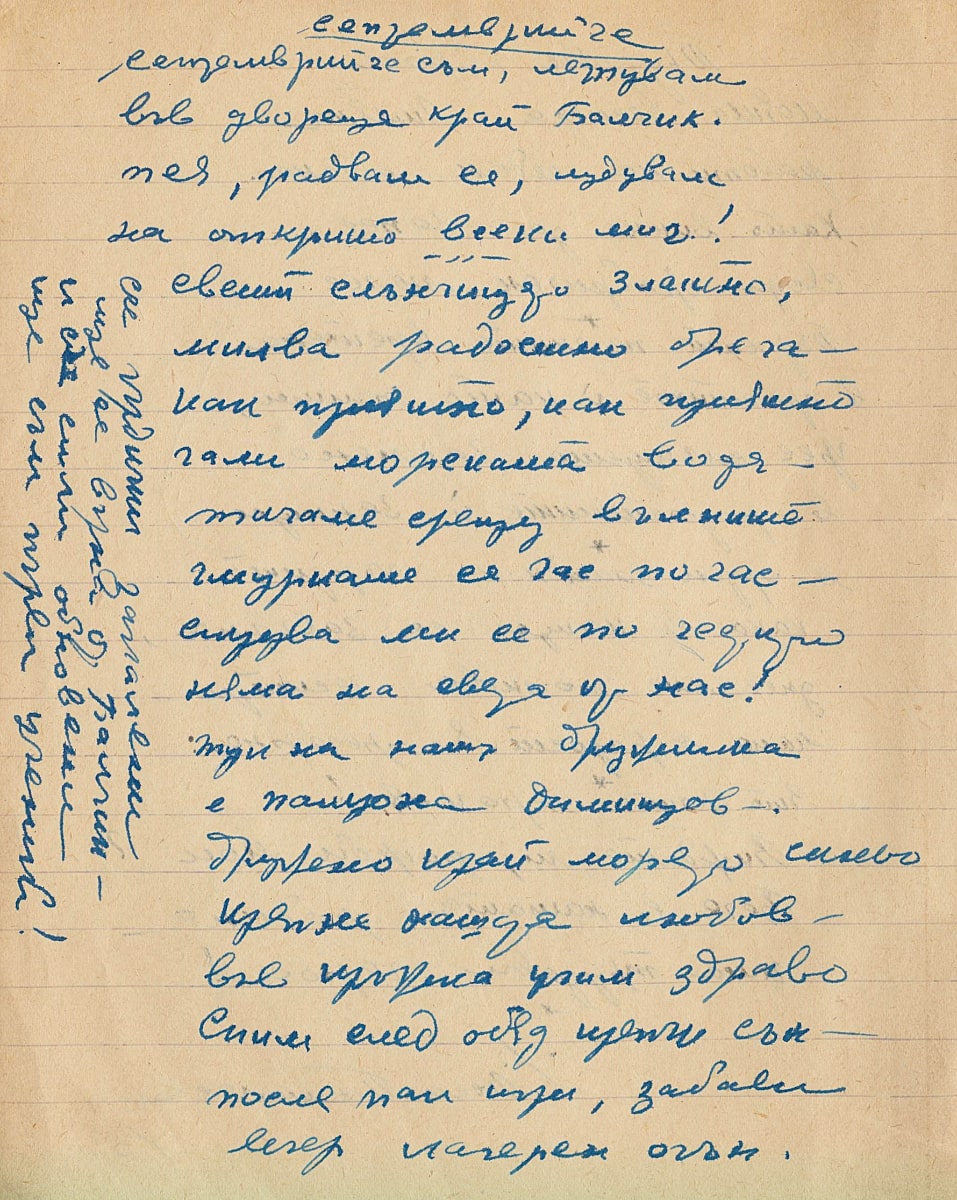 септемврийче
септемврийче съм, летувам
във двореца край Балчик.
пея, радвам се, лудувам
на открито всеки миг!
свети слънчицето златно,
милва радостно брега –
как приятно, как приятно
гали морската вода –
тичаме срещу вълните
гмуркаме се час по час –
струва ми се по честити
няма на света от нас!
туй на наш дружинка
е патрона Димитров –
дружно край морето синьо
крепне нашта любов –
във кръжока учим здраво
Спим след обяд крепък сън –
после пак игри, забави
вечер лагерен огън.
със гърди загалени
ще се върна от Балчик –
и със сили обновени
ще съм първи ученик!